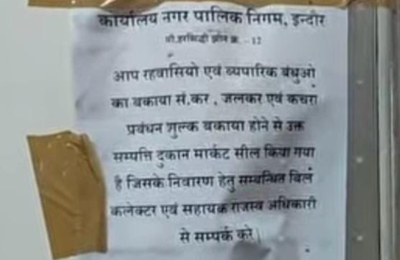 कार्यालय नगर पालिक निगम, इन्दौर
श्री हरसिद्धी झोन क्र. - 12
आप रहवासियो एवं व्यपारिक बंधुओ
का बकाया सं.कर , जलकर एवं कचरा
प्रबंधन शुल्क बकाया होने से उक्त
सम्पत्ति दुकान मार्केट सील किया गया
है जिसके निवारण हेतु सम्बन्धित बिल
कलेक्टर एवं सहायक राजस्व अधिकारी
से सम्पर्क करे।